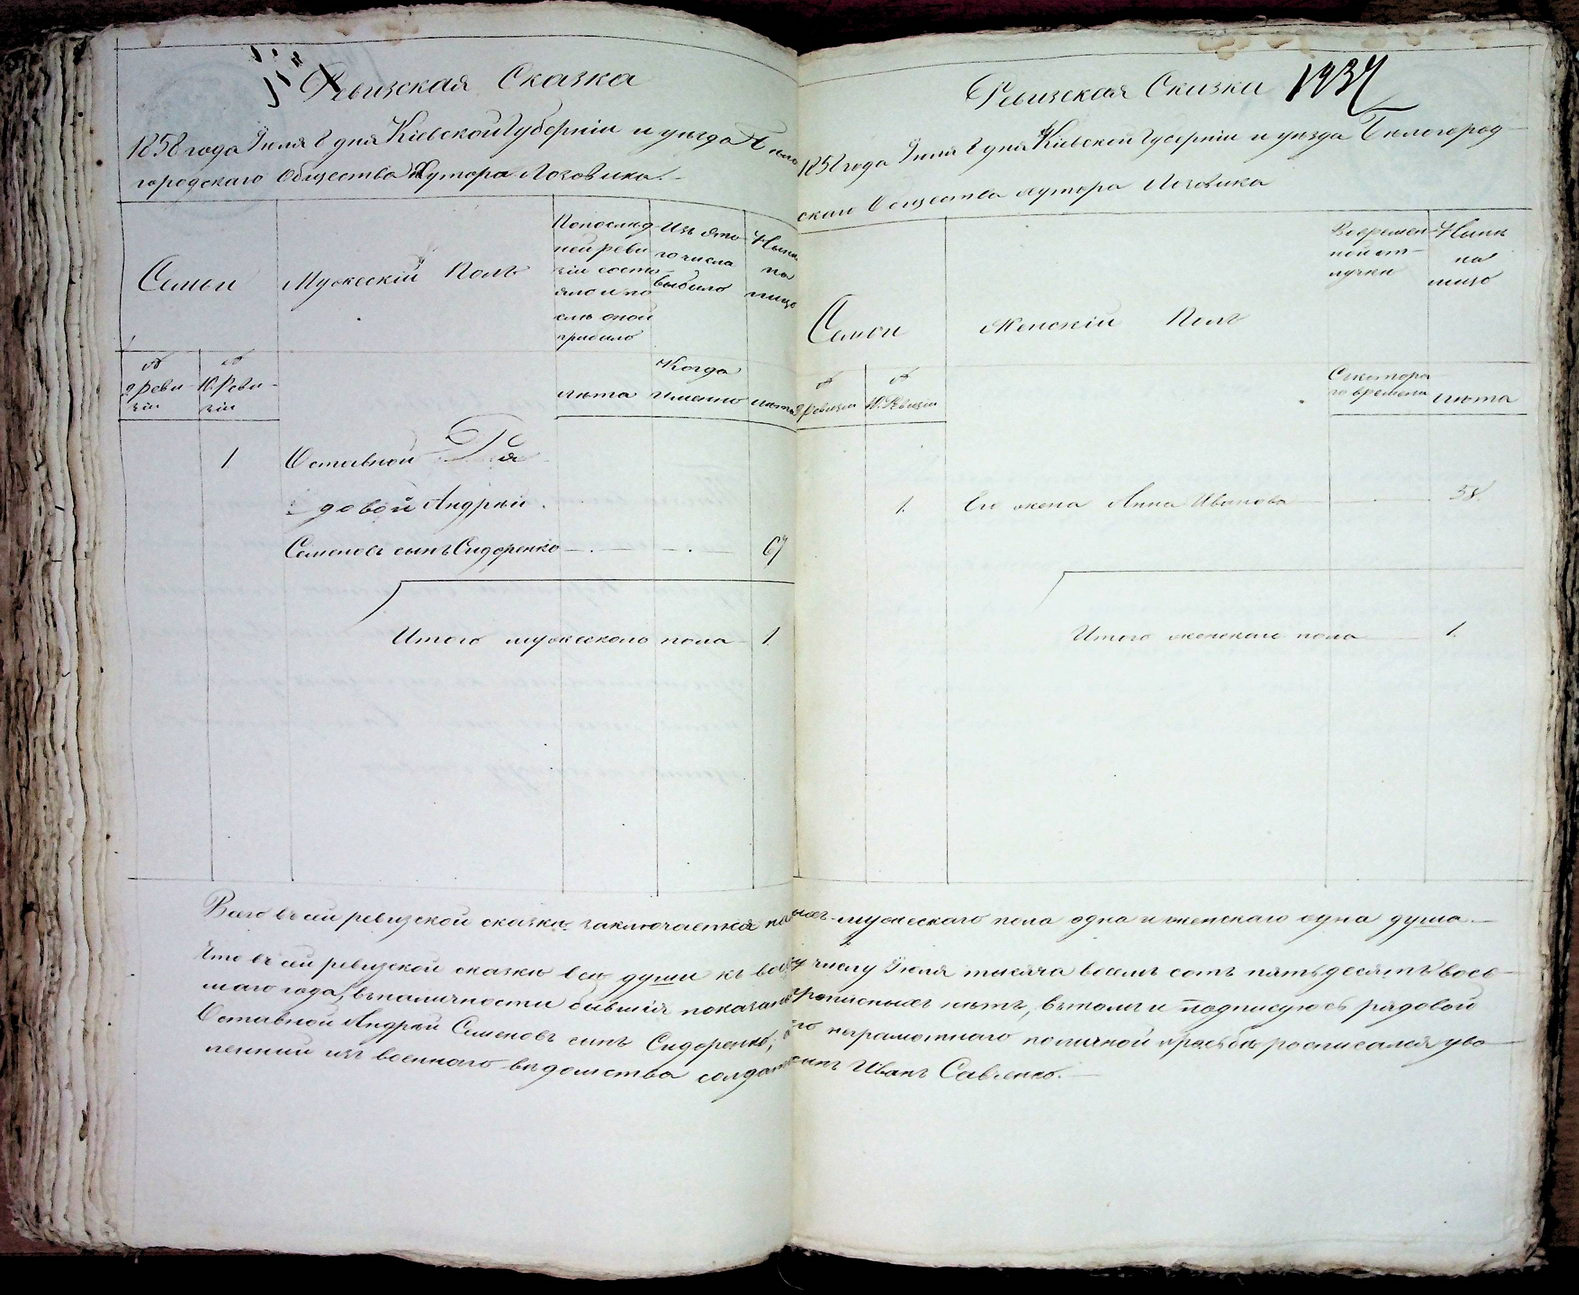 Ревизская Сказка
1858 года Июля 8 дня Кіевской Губерніи и уезда Бѣло
городскаго Общества Хутора Лозовика.
Семьи
Мужескій Полъ
По послѣд
ней реви
зіи состо
яло и по
слѣ оной
прибыло
Изъ это
го числа
выбыло
Нынѣ
на
лицо
№
9 реви
зіи
№
10. Реви
зіи
лѣта
Когда
именно
лѣта
1
Отставной Ря
довой Андрей
Семеновъ сынъ Сидоренко
67
Итого мужескаго пола 1.
Ревизская Сказка 1937
1858 года Июля 8 дня Кіевской Губерніи и уезда Бѣлогород
скаго Общества хутора Лозовика
Семьи
Женскій Полъ
Во времен
ной от
лучки
Нынѣ
на
лицо
№
9 ревизіи
№
10. Ревизіи
Съ котора
го времени
лѣта
1.
Его жена Анна Иванова
58
Итого женскаго пола 1.
Всего въ сей ревизской сказкѣ заключается на лицо мужескаго пола одна и женскаго одна душа.
Что въ сей ревизской сказкѣ все души къ числу Июля тысяча восемь сотъ пятьдесятъ вось
маго года, въ наличности бывшія показаны прописныхъ нѣтъ, въ томъ и подписуюсь рядовой
Отставной Андрей Семеновъ сынъ Сидоренко, неграмотнаго по личной просьбѣ росписался уво
ленный изъ военнаго вѣдомства сынъ Иванъ Савченко.